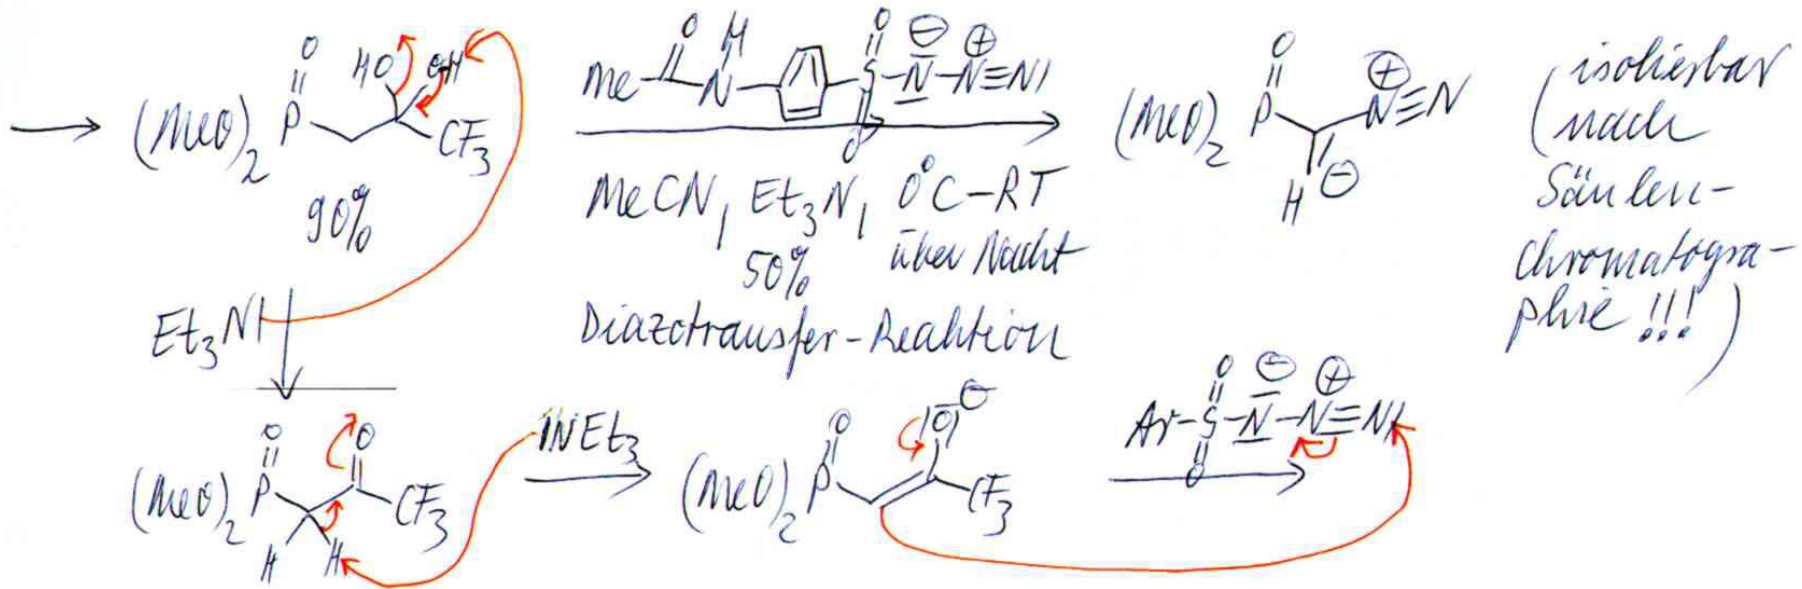 (MeO)2 P O HO OH CF3
90%
Me O N H S O O N ⊖ N ⊕ ≡ N
MeCN, Et3N, 0°C-RT
50% über Nacht
Diazotransfer-Reaktion
(MeO)2 P O H ⊖ N ⊕ ≡ N
(isolierbar
nach
Säulen-
chromatogra-
phie !!!)
Et3N
(MeO)2 P O O CF3 H H
NEt3
(MeO)2 P O O ⊖ CF3
Ar-S O O -N ⊖ -N ⊕ ≡N